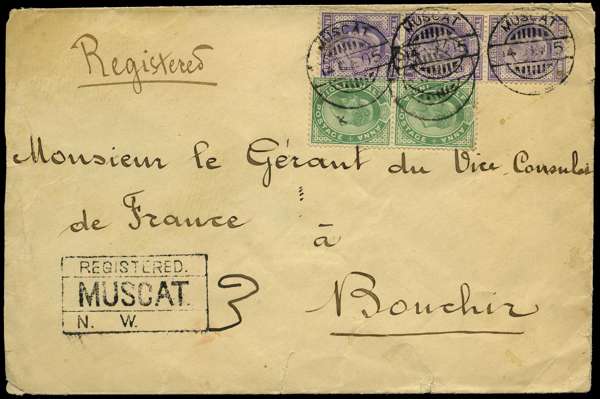 Registered
MUSCAT
MUSCAT
MUSCAT
POSTAGE ANNA
POSTAGE ANNA
Monsieur le Gérant du Vice Consulat
de France
à
Bouchir
REGISTERED.
MUSCAT.
N. W.
3